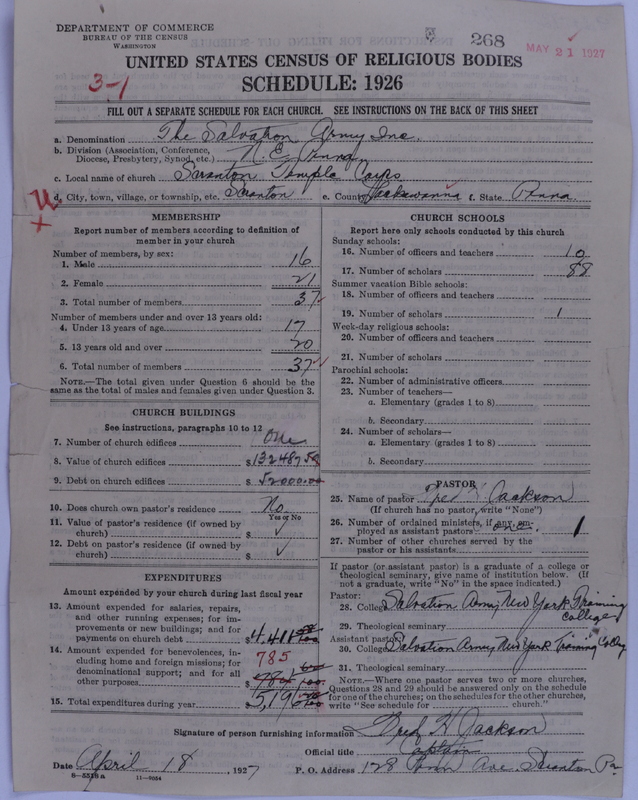 DEPARTMENT OF COMMERCE
BUREAU OF THE CENSUS
WASHINGTON
268
MAY 21 1927
UNITED STATES CENSUS OF RELIGIOUS BODIES
3-1
SCHEDULE: 1926
FILL OUT A SEPARATE SCHEDULE FOR EACH CHURCH. SEE INSTRUCTIONS ON THE BACK OF THIS SHEET
a. Denomination The Salvation Army Inc.
b. Division (Association, Conference, Diocese, Presbytery, Synod, etc.) N. E. Penna
c. Local name of church Scranton Temple Corps
d. City, town, village, or township, etc. Scranton e. County Lackawanna f. State Penna.
MEMBERSHIP
Report number of members according to definition of
member in your church
Number of members, by sex:
1. Male 16
2. Female 21
3. Total number of members 37
Number of members under and over 13 years old:
4. Under 13 years of age 17
5. 13 years old and over 20
6. Total number of members 37
NOTE.—The total given under Question 6 should be the
same as the total of males and females given under Question 3.
CHURCH BUILDINGS
See instructions, paragraphs 10 to 12
7. Number of church edifices One
8. Value of church edifices $132487.50
9. Debt on church edifices $52000.00
10. Does church own pastor's residence? No
Yes or No
11. Value of pastor's residence (if owned by
church) $ ✓
12. Debt on pastor's residence (if owned by
church) $ ✓
EXPENDITURES
Amount expended by your church during last fiscal year
13. Amount expended for salaries, repairs,
and other running expenses; for im-
provements or new buildings; and for
payments on church debt $4,411
14. Amount expended for benevolences, in-
cluding home and foreign missions; for
denominational support; and for all
other purposes $ 785
15. Total expenditures during year $5,196
CHURCH SCHOOLS
Report here only schools conducted by this church
Sunday schools:
16. Number of officers and teachers 10
17. Number of scholars 88
Summer vacation Bible schools:
18. Number of officers and teachers
19. Number of scholars 1
Week-day religious schools:
20. Number of officers and teachers
21. Number of scholars
Parochial schools:
22. Number of administrative officers
23. Number of teachers—
a. Elementary (grades 1 to 8)
b. Secondary
24. Number of scholars—
a. Elementary (grades 1 to 8)
b. Secondary
PASTOR
25. Name of pastor Fred K Jackson
(If church has no pastor, write "None")
26. Number of ordained ministers, if any, em-
ployed as assistant pastors one. 1
27. Number of other churches served by the
pastor or his assistants
If pastor (or assistant pastor) is a graduate of a college or
theological seminary, give name of institution below. (If
not a graduate, write "No" in the space indicated.)
Pastor:
28. College Salvation Army New York Training College
29. Theological seminary
Assistant pastor:
30. College Salvation Army New York Training Colleg
31. Theological seminary
NOTE.—Where one pastor serves two or more churches,
Questions 28 and 29 should be answered only on the schedule
for one of the churches; on the schedules for the other churches,
write "See schedule for church."
Signature of person furnishing information Fred K Jackson
Official title Captain
Date April 18, 1927 P. O. Address 128 Penn Ave. Scranton Pa
8-5518a 11-9034